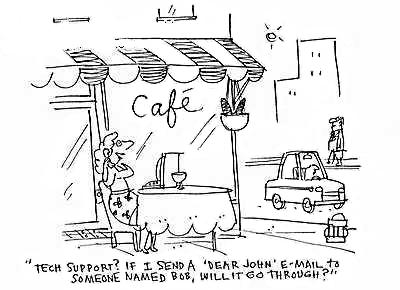 Café
"TECH SUPPORT? IF I SEND A 'DEAR JOHN' E-MAIL TO
SOMEONE NAMED BOB, WILL IT GO THROUGH?"